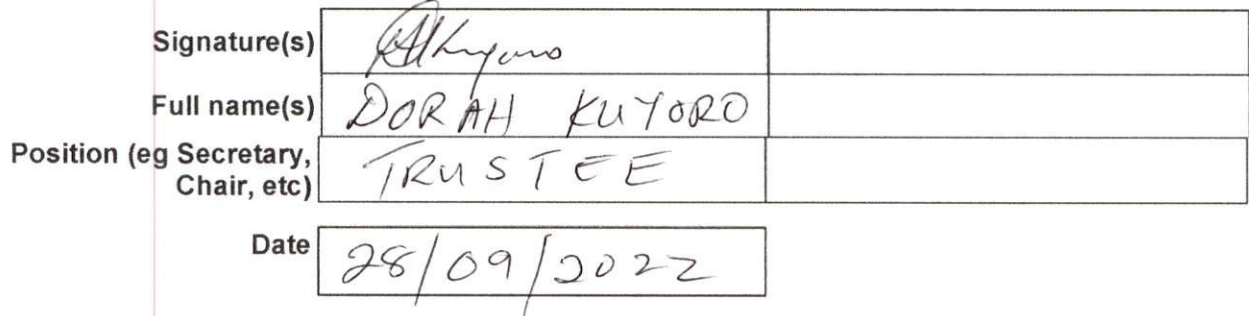 Signature(s)
Full name(s) DORAH KUYORO
Position (eg Secretary, TRUSTEE
Chair, etc)
Date 28/09/2022